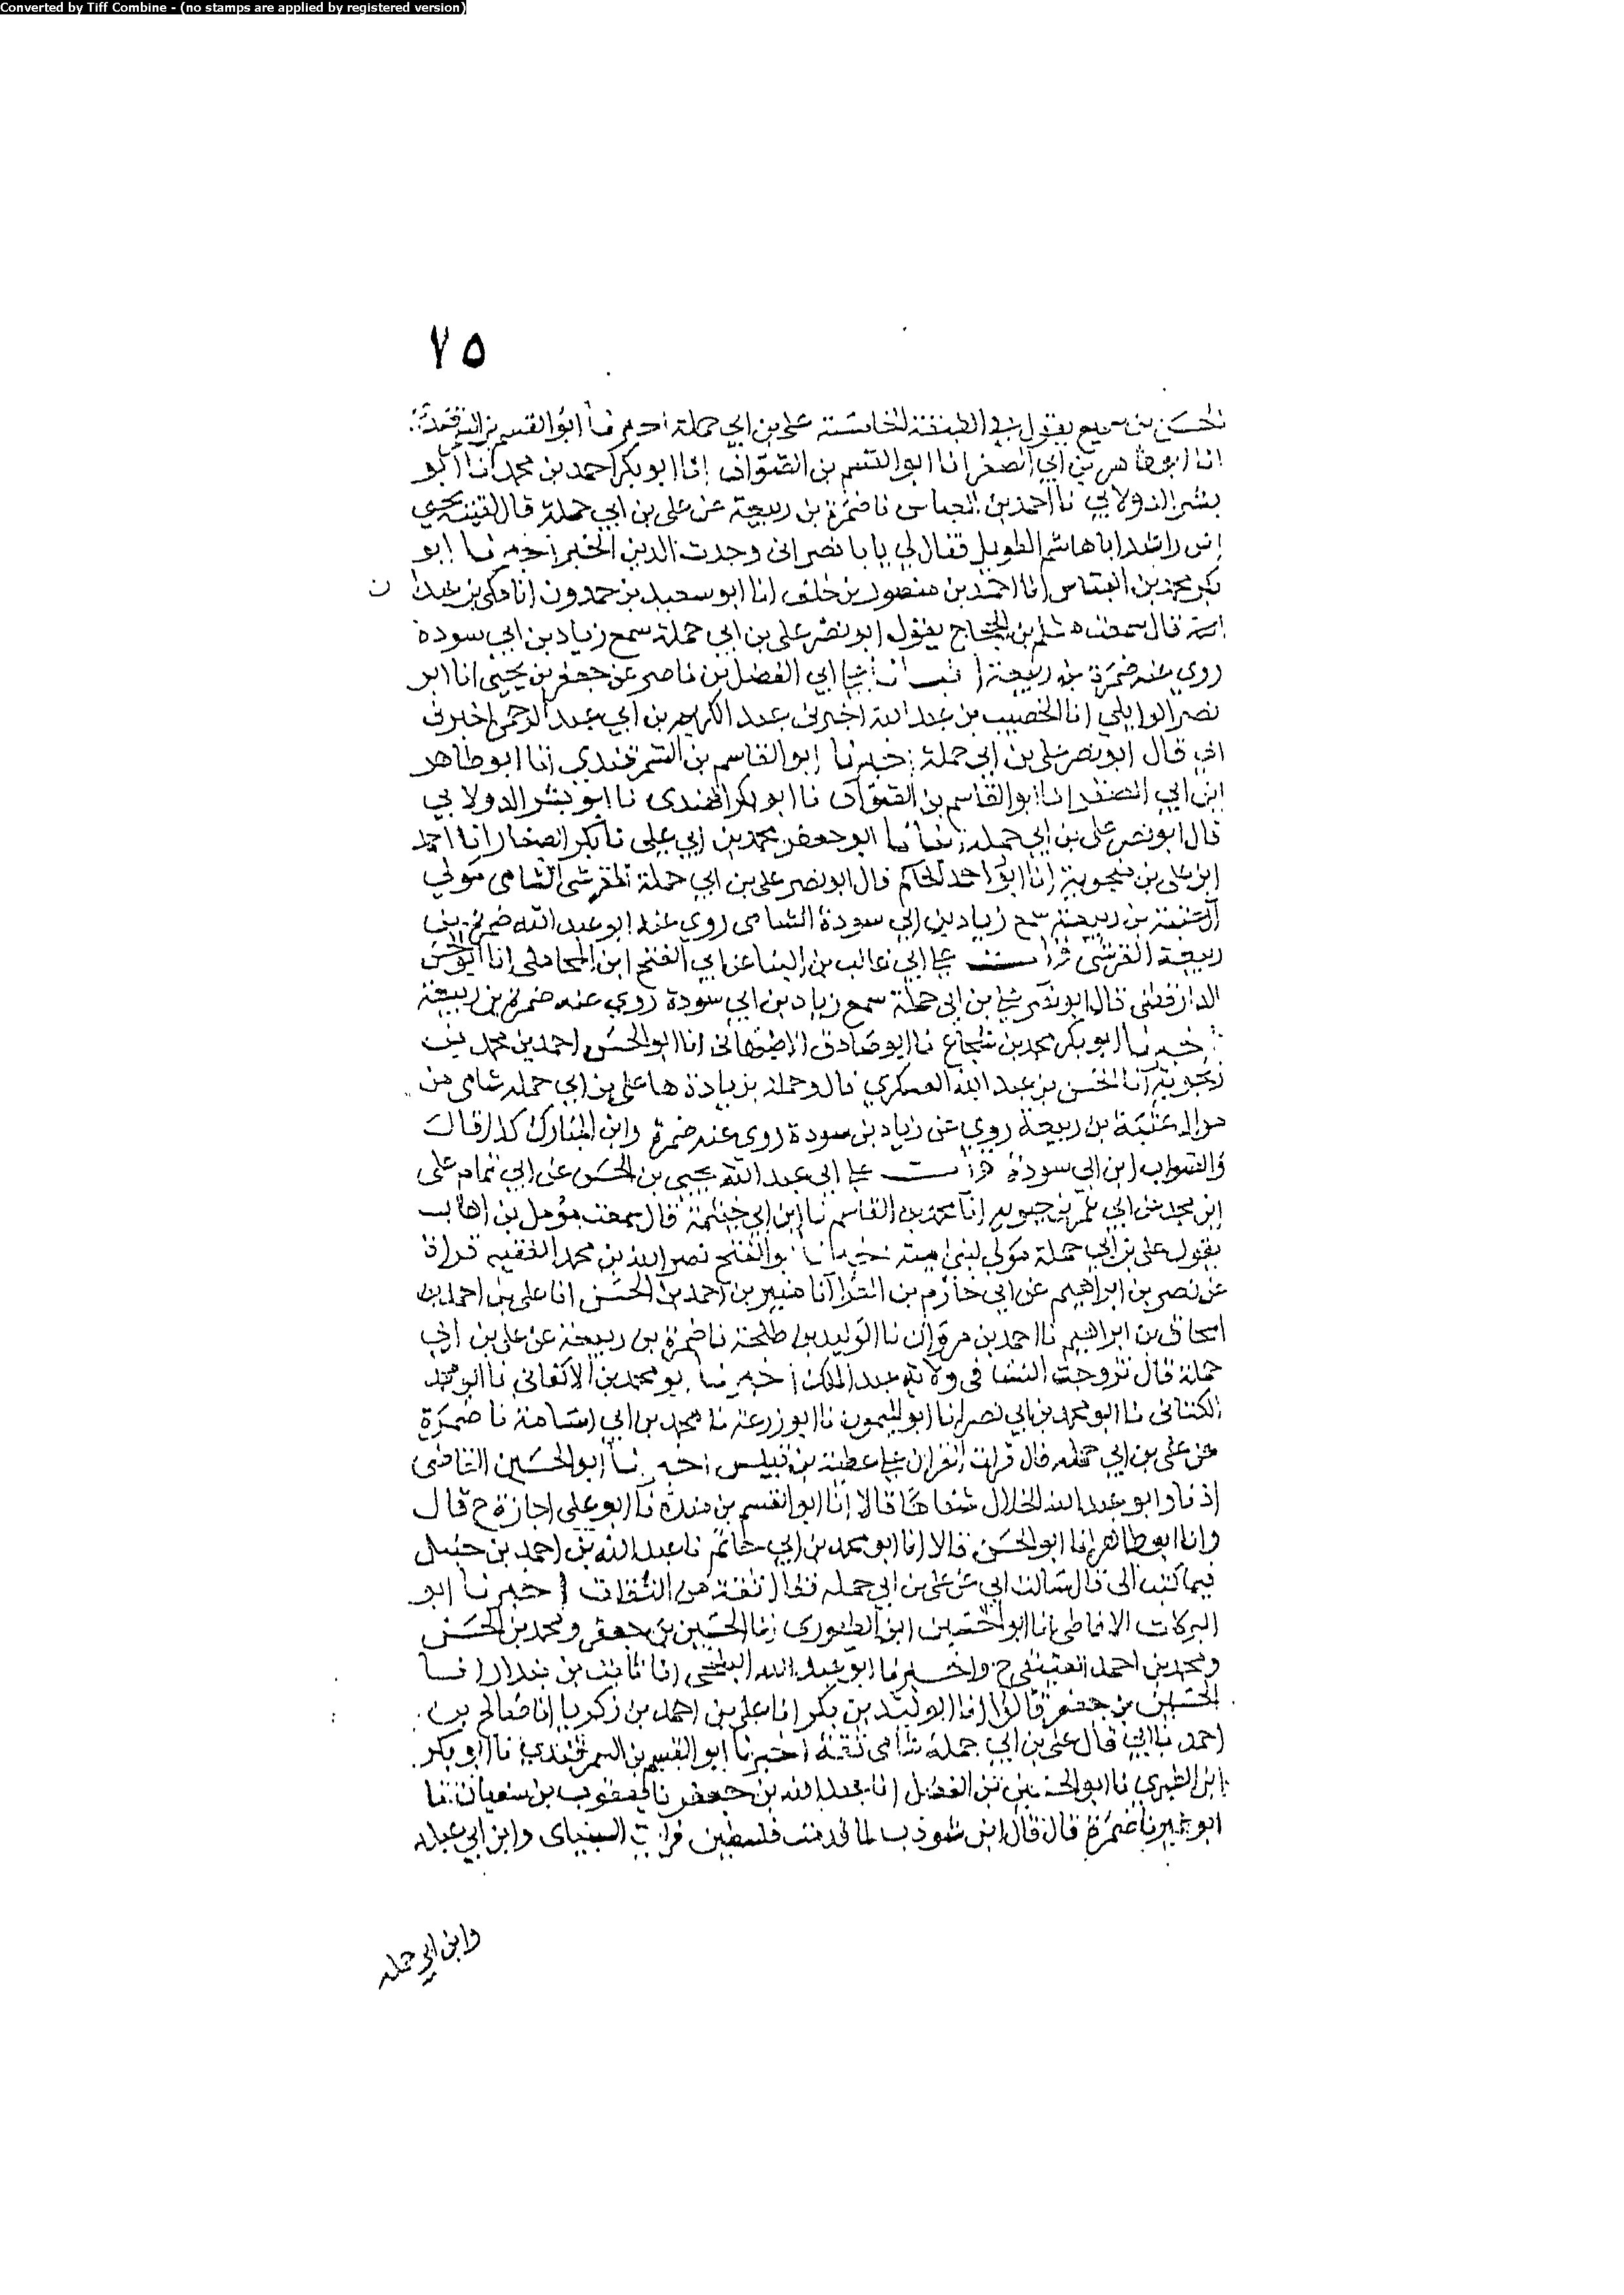 Converted by Tiff Combine - (no stamps are applied by registered version)
٧٥
الحسن بن سميع يقول في الطبقة الخامسة علي بن ابي حملة اخبرنا ابو القسم بن السمرقندي
انا ابو طاهر بن ابي الصقر انا ابو القسم بن الصواف انا ابو بكر احمد بن محمد نا ابو
بشر الدولابي نا احمد بن العباس نا ضمرة بن ربيعة عن علي بن ابي حملة قال لقيني يحيى
ابن راشد ابا هاشم الطويل فقال لي يابا نصر اني وجدت الدين الخير اخبرنا ابو
بكر محمد بن العباس انا احمد بن منصور بن خلف انا ابو سعيد بن حمدون انا مكي بن عبدان
قال سمعت مسلم بن الحجاج يقول ابو نصر علي بن ابي حملة سمع زياد بن ابي سودة
روى عنه ضمرة بن ربيعة قرات على ابي الفضل بن ناصر عن جعفر بن يحيى انا ابو
نصر الوايلي انا الخصيب بن عبد الله اخبرني عبد الكريم بن ابي عبد الرحمن اخبرني
ابي قال ابو نصر علي بن ابي حملة اخبرنا ابو القاسم بن السمرقندي انا ابو طاهر
ابن ابي الصقر انا ابو القاسم بن الصواف نا ابو بكر المهندس نا ابو بشر الدولابي
قال ابو نصر علي بن ابي حملة انبانا ابو جعفر محمد بن ابي علي نا بكر الصفار انا احمد
ابن علي بن منجوية انا ابو احمد الحاكم قال ابو نصر علي بن ابي حملة القرشي الشامي مولى
آل عتبة بن ربيعة سمع زياد بن ابي سودة الشامي روى عنه ابو عبد الله ضمرة بن
ربيعة القرشي قرات على ابي غالب بن البنا عن ابي الفتح ابن المحاملي انا ابو الحسن
الدارقطني قال ابو نصر علي بن ابي حملة سمع زياد بن ابي سودة روى عنه ضمرة بن ربيعة
اخبرنا ابو بكر محمد بن شجاع نا ابو صادق الاصفهاني انا ابو الحسن احمد بن محمد بن
زنجوية انا الحسن بن عبد الله العسكري قال وحملة بزيادة ها علي بن ابي حملة شامي من
موالي عتبة بن ربيعة روى عن زياد بن سودة روى عنه ضمرة وابن المبارك كذا قال
والصواب ابن ابي سودة قرات على ابي عبد الله يحيى بن الحسن عن ابي تمام علي
ابن محمد عن ابي عمر بن حيويه انا محمد بن القاسم نا ابن ابي خيثمة قال سمعت مؤمل بن اهاب
يقول علي بن ابي حملة مولى لبني امية اخبرنا ابو الفتح نصر الله بن محمد الفقيه قراة
عن نصر بن ابراهيم عن ابي خازم بن الفرا انا منير بن احمد بن الحسن انا علي بن احمد بن
اسحاق بن ابراهيم نا احمد بن مروان نا الوليد بن طلحة نا ضمرة بن ربيعة عن علي بن ابي
حملة قال تزوجت النسا في ولاية عبد الملك اخبرنا ابو محمد بن الاكفاني نا ابو محمد
الكتاني نا ابو محمد بن ابي نصر انا ابو الميمون نا ابو زرعة نا محمد بن ابي اسامة نا ضمرة
عن علي بن ابي حملة قال قرات القران على عطية بن قيس اخبرنا ابو الحسين القاضي
اذنا وابو عبد الله الخلال شفاها قالا انا ابو القسم بن مندة نا ابو علي اجازة ح قال
وانا ابو طاهر انا ابو الحسن قالا انا ابو محمد بن ابي حاتم نا عبد الله بن احمد بن حنبل
فيما كتب الي قال سالت ابي عن علي بن ابي حملة فقال ثقة من الثقات اخبرنا ابو
البركات الانماطي انا ابو الحسين ابن الطيوري انا الحسين بن جعفر ومحمد بن الحسن
ومحمد بن احمد العتيقي ح واخبرنا ابو عبد الله البلخي انا ثابت بن بندار انا
الحسين بن جعفر قالوا انا الوليد بن بكر انا علي بن احمد بن زكريا انا صالح بن
احمد نا ابي قال علي بن ابي حملة شامي ثقة اخبرنا ابو القسم بن السمرقندي نا ابو بكر
ابن الطبري نا ابو الحسين بن الفضل انا عبد الله بن جعفر نا يعقوب بن سفيان نا
ابو عمير نا ضمرة قال قال ابن شوذب لما قدمت فلسطين فرايت السيباني وابن ابي عبلة
وابن ابي حملة